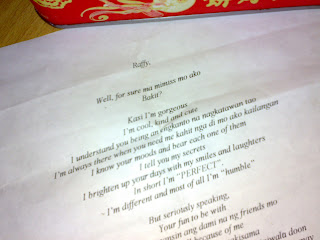 Raffy,
Well, for sure ma mimiss mo ako
Bakit?
Kasi I'm gorgeous
I'm cool, kind and cute
I understand you being an engkanto na nagkatawan tao
I'm always there when you need me kahit nga di mo ako kailangan
I know your moods and bear each one of them
I tell you my secrets
I brighten up your days with my smiles and laughters
In short I'm "PERFECT".
- I'm different and most of all I'm "humble"
But seriously speaking,
Your fun to be with
sin ang dami na ng friends mo
because of me
kisama
wala doon